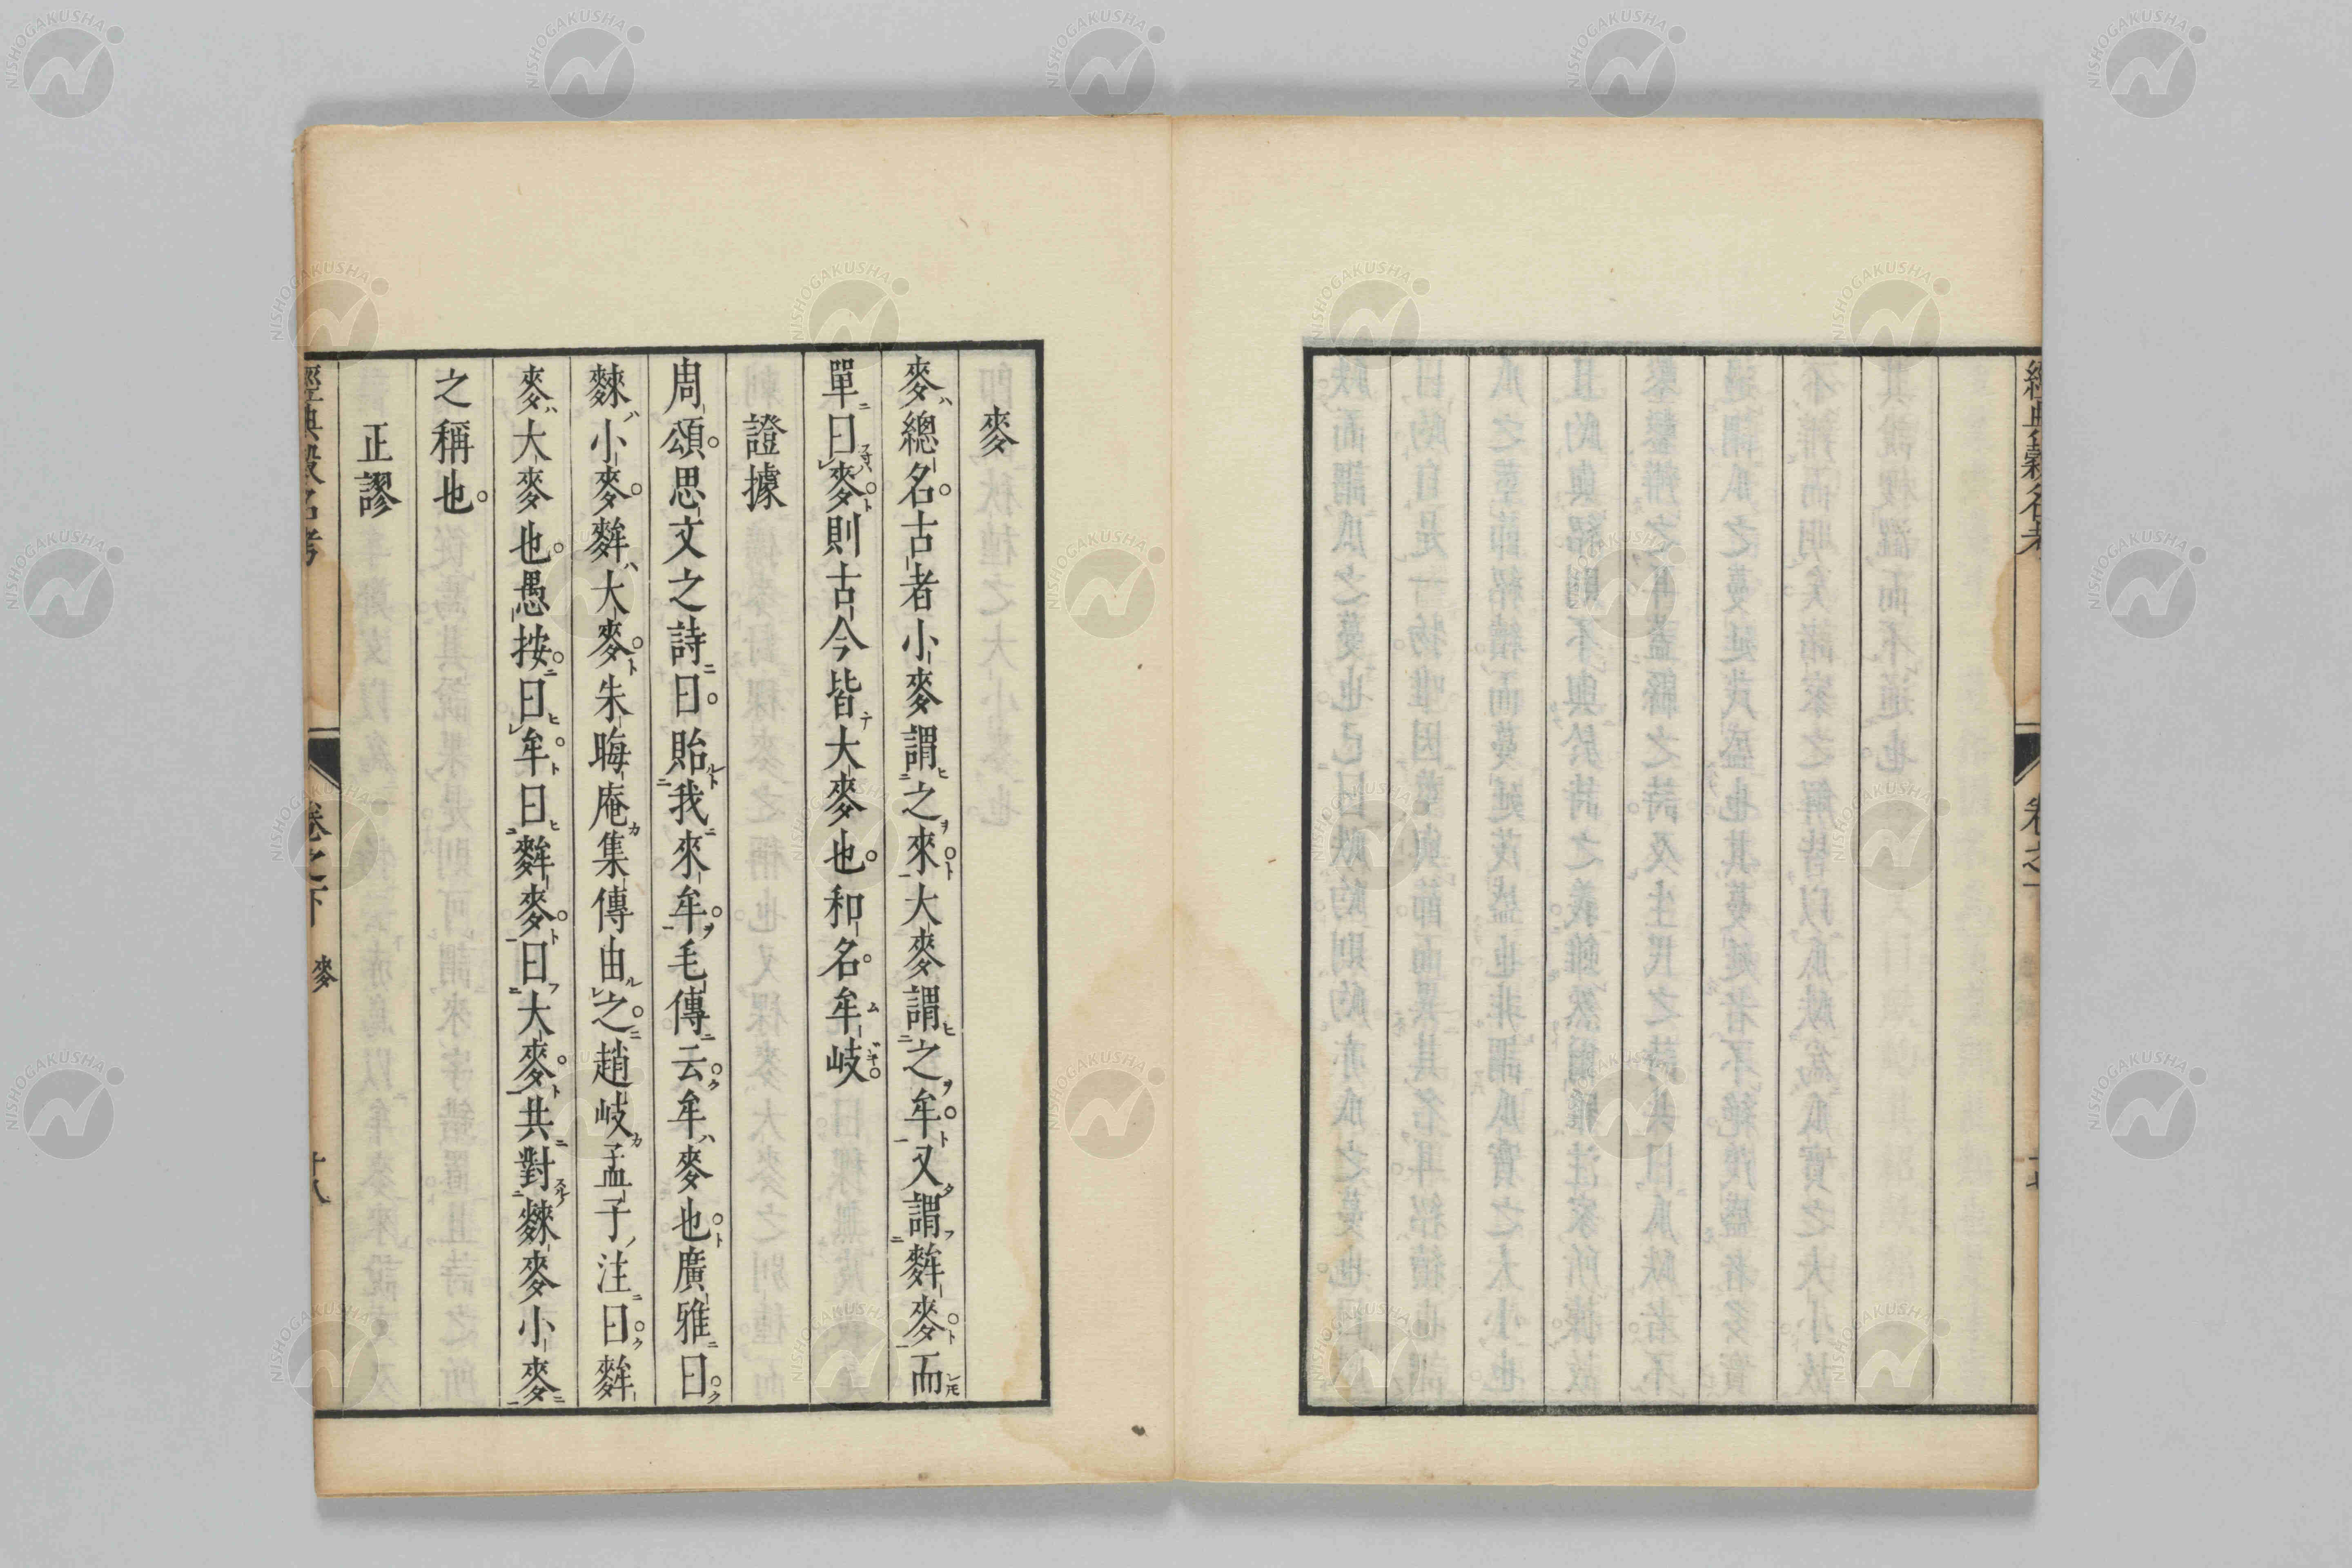 經典穀名考
卷之
麥
麥總名古者小麥謂之來大麥謂之牟又謂麰麥而
單曰麥則古今皆大麥也和名牟岐
證據
周頌思文之詩曰貽我來牟毛傳云牟麥也廣雅曰
麳小麥麰大麥朱晦庵集傳由之趙岐孟子注曰麰
麥大麥也愚按曰牟曰麰麥曰大麥共對麳麥小麥
之稱也
正謬
經典穀名考 卷之下 麥 十八
NISHOGAKUSHA